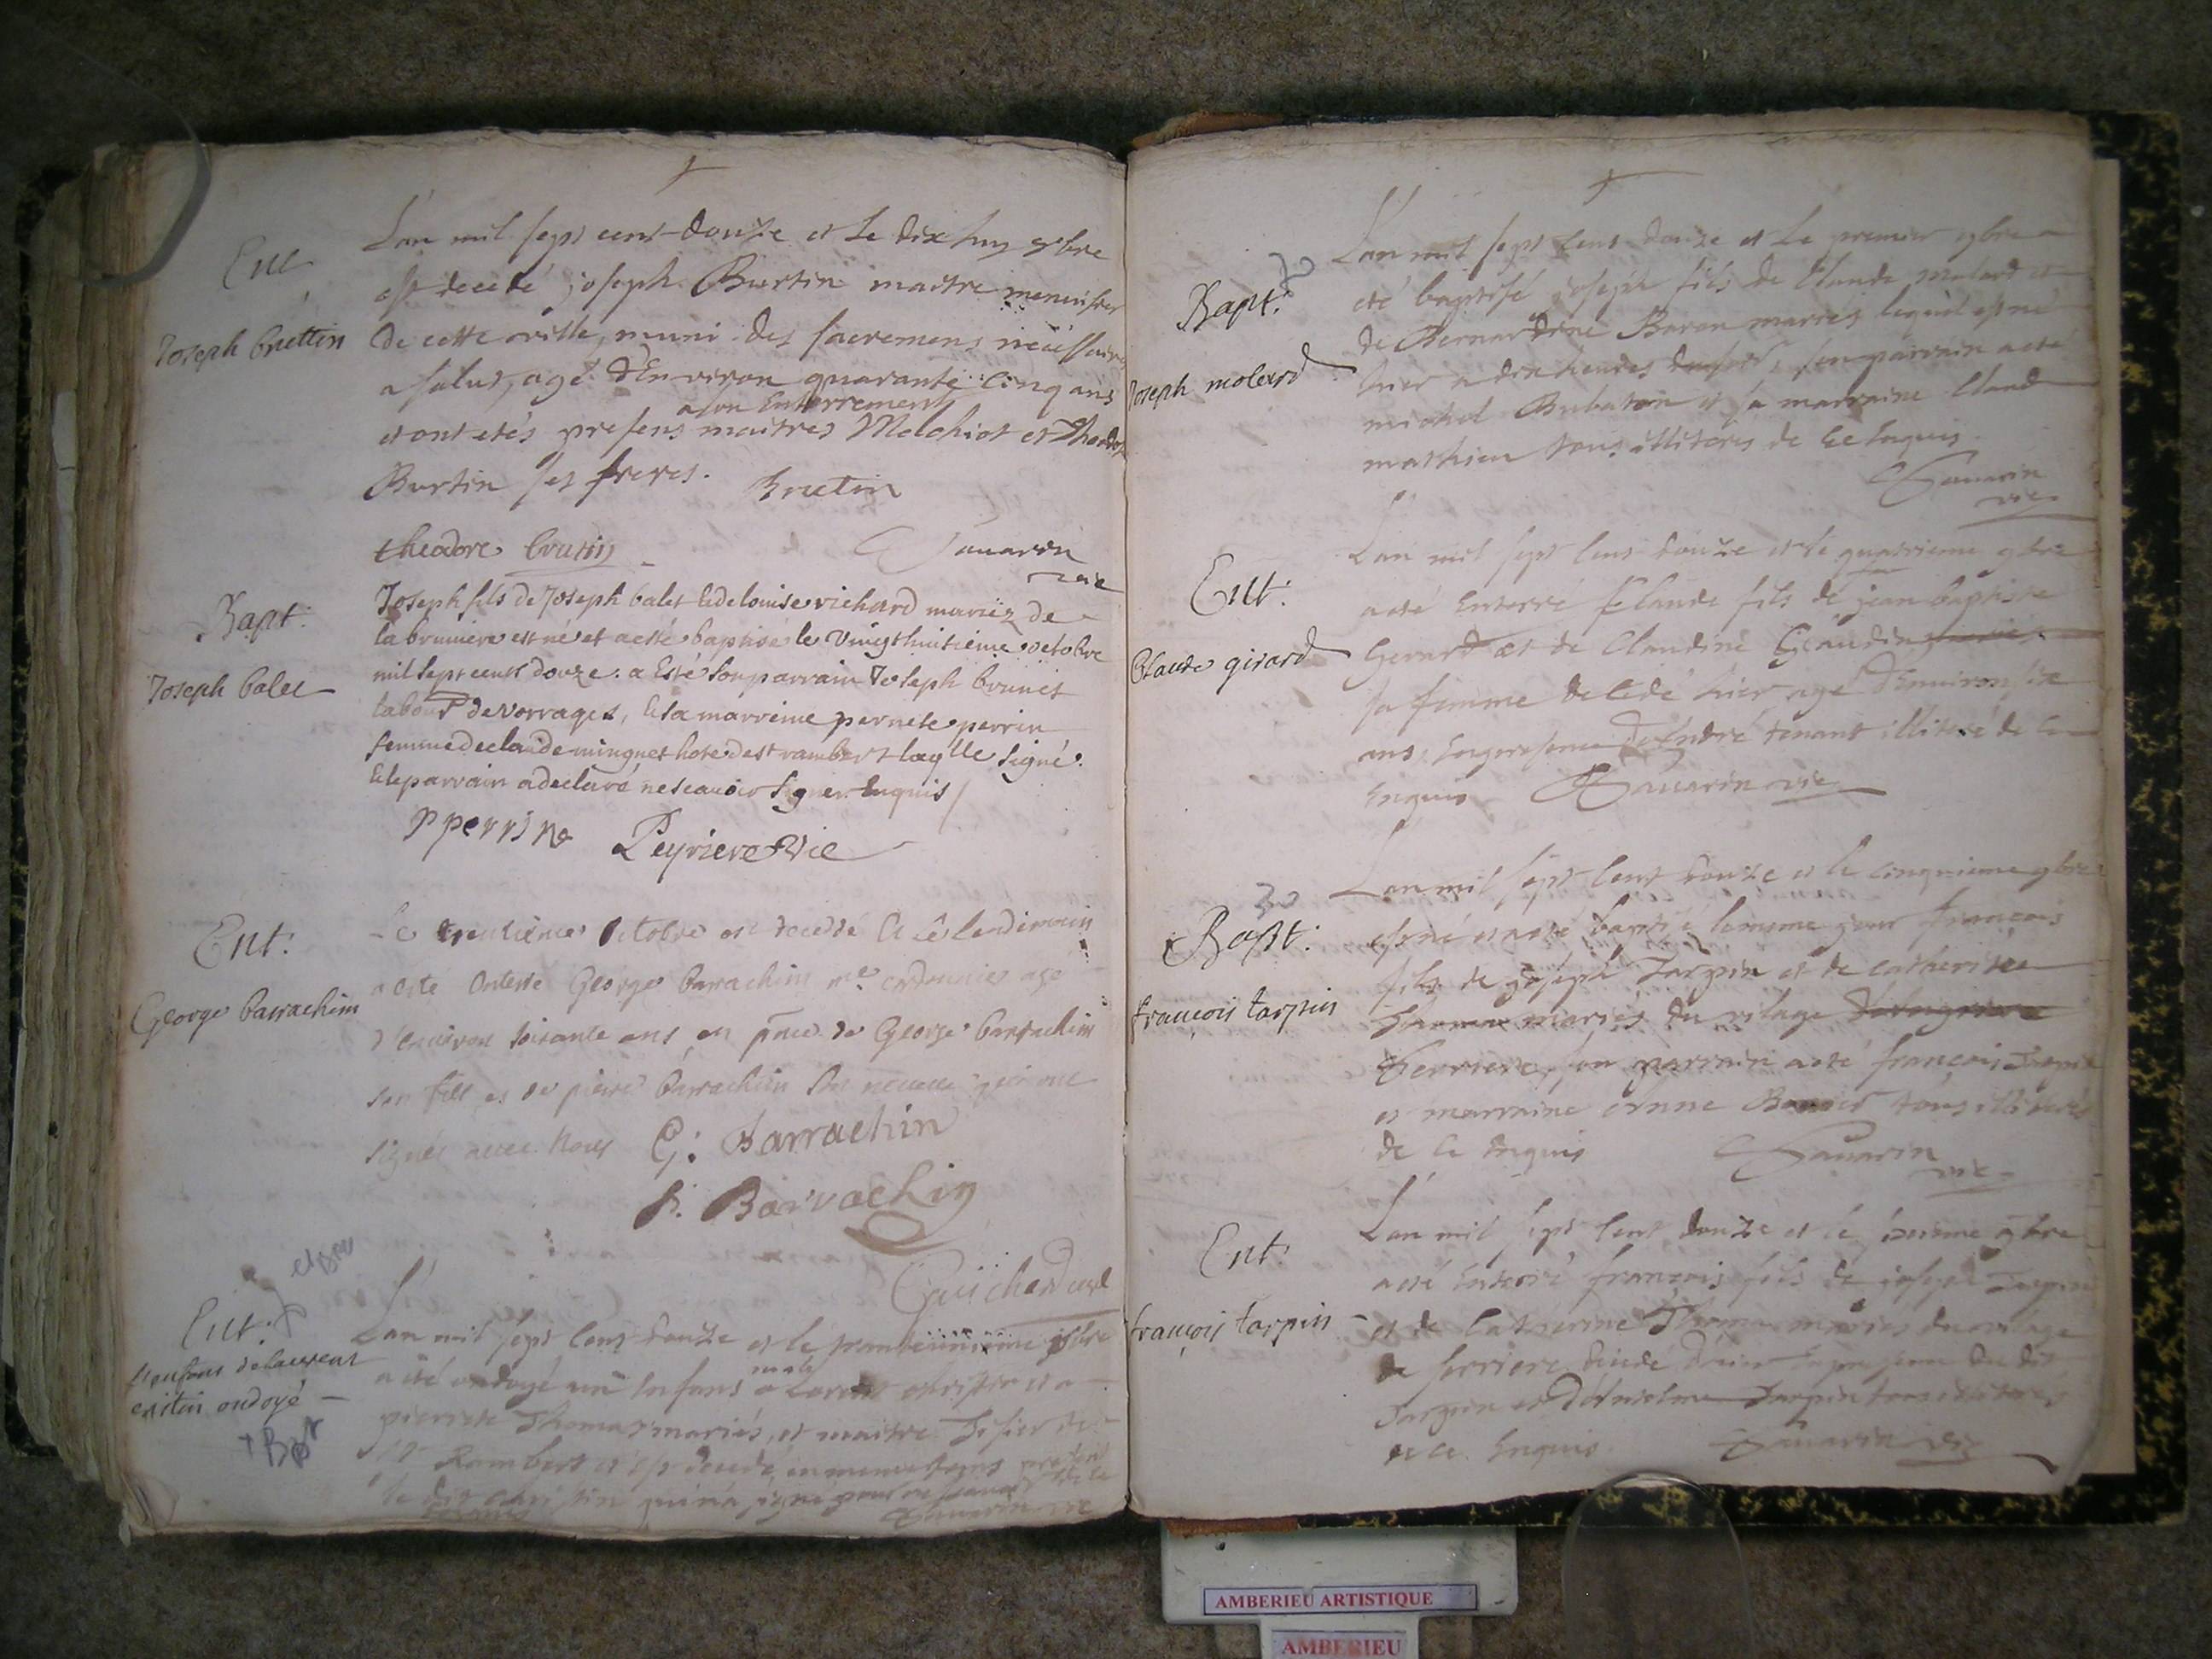 Ent
Joseph Brettin
L'an mil sept cent douze et le dix huy 8bre
est decedé joseph Burtin maitre menuisier
de cette ville, muni des sacremens nécessaires
a salut, agé d'Environ quarante cinq ans
a son Enterrement
et ont etés presens maitres Melchiot et Theodore
Burtin ses freres. Bruttin
theodore
Savarin
vic
Bapt:
Joseph balet
Joseph fils de Joseph balet & de louise richard mariéz de
la bruniere est né et a esté baptisé le vingthuitieme octobre
mil sept cent douze. a Esté son parrain Joseph brunet
labour de vorrages, & sa marreine pernete perrin
femme de claude minguet hote de st rambert laqlle signé.
& le parrain a declaré ne scauoir signer Enquis/
P perrine Peyriere vic
Ent:
George barrachim
Le trentieme Octobre est decedé & le lendemain
a été enterré George barrachim me cordonnier agé
d'environ soixante ans, en pnce de George barrachim
son fils, et de pierre barrachim son neveu qui ont
signés avec nous G: Barrachin
P. Barrachin
Guichard curé
Ent:
l'enfans de laurent
cristin ondoyé
+ Bapt
L'an mil sept cent douze et le trenteunieme 8bre
male
a été ondoyé un Enfans a Laurent christin et a
pierrete Thomas mariés, et maitre
St Rambert et est decedé en meme tems present
le dit christin qui n'a signé pour ne scavoir
Savarin vic
Bapt:
Joseph molard
L'an mil sept cent douze et le premier 9bre
eté baptisé joseph fils de Claude molard et
de Bernardine Baron mariés lequel est né
hier a dix heures du soir, son parrain a eté
michel Bubaton et sa marraine Claud
mathieu tous illiterés de ce Enquis.
Savarin
vic
Ent:
Claude girard
L'an mil sept cent douze et le quatrieme 9bre
a eté Enterré Claude fils de jean baptiste
Gerard et de Claudine
sa femme decedé hier agé d'Environ six
ans, En presence d'André tenant illiteré de ce
Enquis Savarin vic
Bapt:
françois tarpin
L'an mil sept cent douze et le cinquieme 9bre
est né et a eté baptisé le meme jour françois
fils de joseph Tarpin et de catherine
Thomas mariés du vilage
ferriere, son parrain a eté françois Tarpin
et marraine Anne tous illiterés
de ce Enquis Savarin
vic
Ent:
françois tarpin
L'an mil sept cent douze et le 9bre
a eté Enterré françois fils de joseph Tarpin
et de Catherine Thomas mariés du vilage
de feriere decedé d'hier En presence du dit
Tarpin et d'Anselme Tarpin tous illiterés
de ce Enquis. Savarin vic
AMBERIEU ARTISTIQUE
AMBERIEU